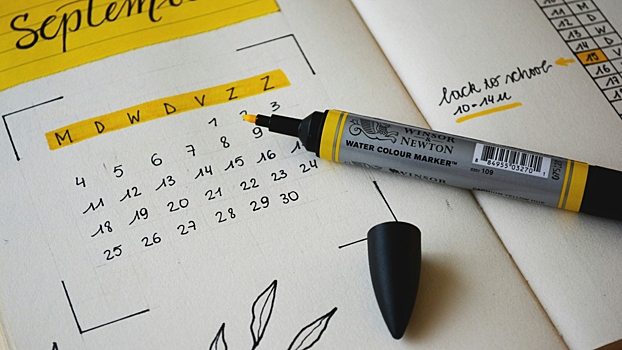 September
M D W D V Z Z
1 2 3
4 5 6 7 8 9
11 12 13 14 15 16
18 19 20 21 22 23 24
25 26 27 28 29 30
back to school
10-14u
11 M
12 D
13 W
14 D
15 V
16
WINSOR
&
NEWTON
WATER COLOUR MARKER™
109
WINSOR